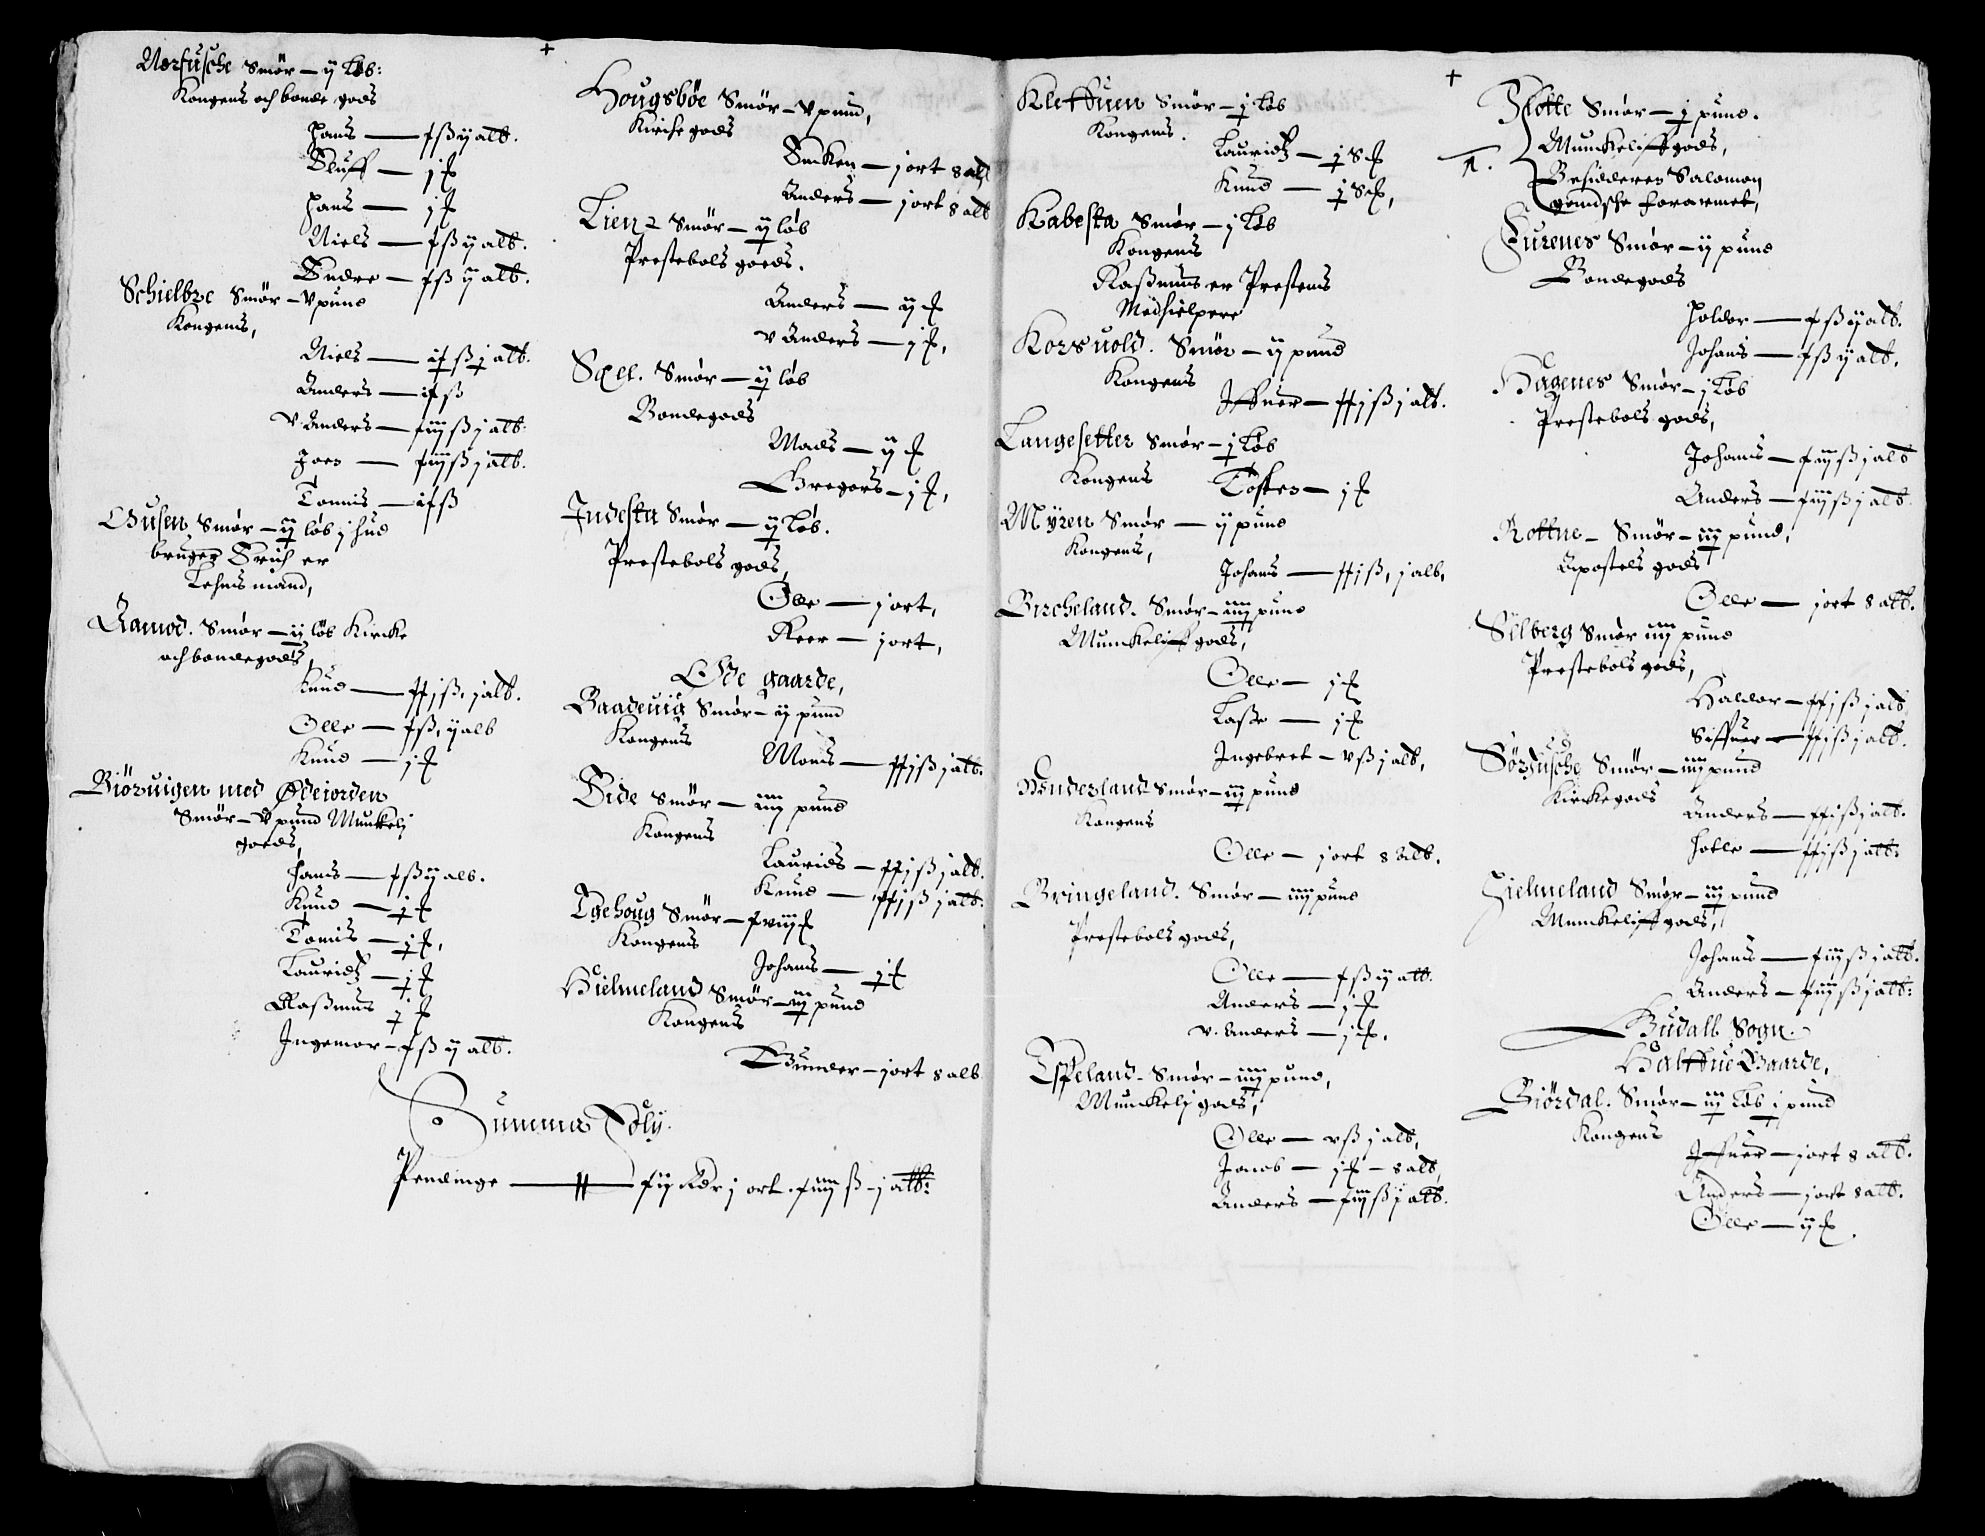 Nørfusche Smør — ij Løb:
Kongens och bonde gods
Hans — fß ij alb.
Oluff — j ₰
Hans — j ₰
Niels — fß ij alb.
Endre — fß ij alb.
Schielbre Smør — v pund
Kongens,
Niels — ifß j alb.
Anders — ifß
v. Anders — fiijß j alb.
Joen — fiijß j alb.
Tomis — ifß
Gusen Smør — ij løb j hud
bruger Erich er
Lehns mand,
Aamod. Smør — ij løb Kircke
och bondegods,
Knud — ffjß, j alb.
Olle — fß, ij alb
Knud — j ₰
Biöruigen med Ødeiorden
Smør — v pund Munkelj
goeds,
Hans — fß ij alb.
Knud — j ₰
Tomis — j ₰,
Lauridtz — j ₰
Rasmus j ₰
Ingemor — fß ij alb.
Hougsbøe Smør — v pund,
Kirche gods
Encken — j ort 8 alb
Anders — j ort 8 alb
Lien 2 Smør — ij løb
Prestebols goeds.
Anders — ij ₰
v Anders — j ₰,
Sæll. Smør — ij løb
Bondegods
Mads — ij ₰
Gregors — j ₰,
Indesta Smør — ij Løb.
Prestebols gods,
Olle — j ort,
Peer — j ort,
Øde gaarde,
Baadeuig Smør — ij pund
Kongens
Mons — ffjß j alb.
Eide Smør — iiij pund
Kongens
Laurids — ffjß j alb.
Knud — ffjß j alb.
Tgehoug Smør — fviij ₰
Kongens
Johans — j ₰
Hielmeland Smør — iij pund
Kongens
Gunder — j ort 8 alb
Summa Søly.
Pendinge — fij Rdr j ort fiiijß j alb:
Kleffuen Smør — j Løb
Kongens.
Lauridtz — j S₰
Knud — j S₰,
Kabesta Smør — j Løb
Kongens
Rasmus er Prestens
Medhielpere
Korsuold. Smør — ij pund
Kongens
Iffuer — ffjß j alb.
Langesetter Smør — j Løb
Kongens Tosten — j ₰
Myren Smør — ij pund
Kongens,
Johans — ffjß, j alb,
Bircheland. Smør — iiij pund
Munckeliff gods,
Olle — j ₰
Lasse — j ₰
Ingebret — vß j alb,
Wnderland Smør — iij pund
Kongens
Olle — j ort 8 alb.
Bringeland. Smør — iiij pund
Prestebols gods,
Olle — fß ij alb.
Anders — j ₰
v. Anders — j ₰.
Espeland. Smør — iiij pund,
Munckelj gods,
Olle — vß j alb,
Jacob — j ₰ — 8 alb,
Anders — fiijß j alb.
Flotte Smør — j pund.
Munckeliff gods,
1. Besidderen Salomon
gandsche forarmet,
Furenes Smør — ij pund
Bondegods
Haldor — fß ij alb.
Johans — fß ij alb.
Hagenes Smør — j Løb
Prestebols gods,
Johans — fiijß j alb
Anders — fiijß j alb.
Rottne — Smør — iij pund,
Apostels gods
Olle — j ort 8 alb.
Silberg Smør iiij pund
Prestebols gods,
Haldor — ffjß j alb
Siffuer — ffjß j alb.
Sørdusche Smør — iiij pund
Kirckegods
Anders — ffjß j alb.
Helle — ffjß j alb:
Hielmeland Smør — iij pund
Munckeliff gods,
Johans — fiijß j alb.
Anders — fiijß j alb:
Gudall Sogn.
Halffue Gaarde,
Giördal. Smør — iij Løb j pund
Kongens
Iffuer — j ort 8 alb.
Anders — j ort 8 alb.
Olle — ij ₰.